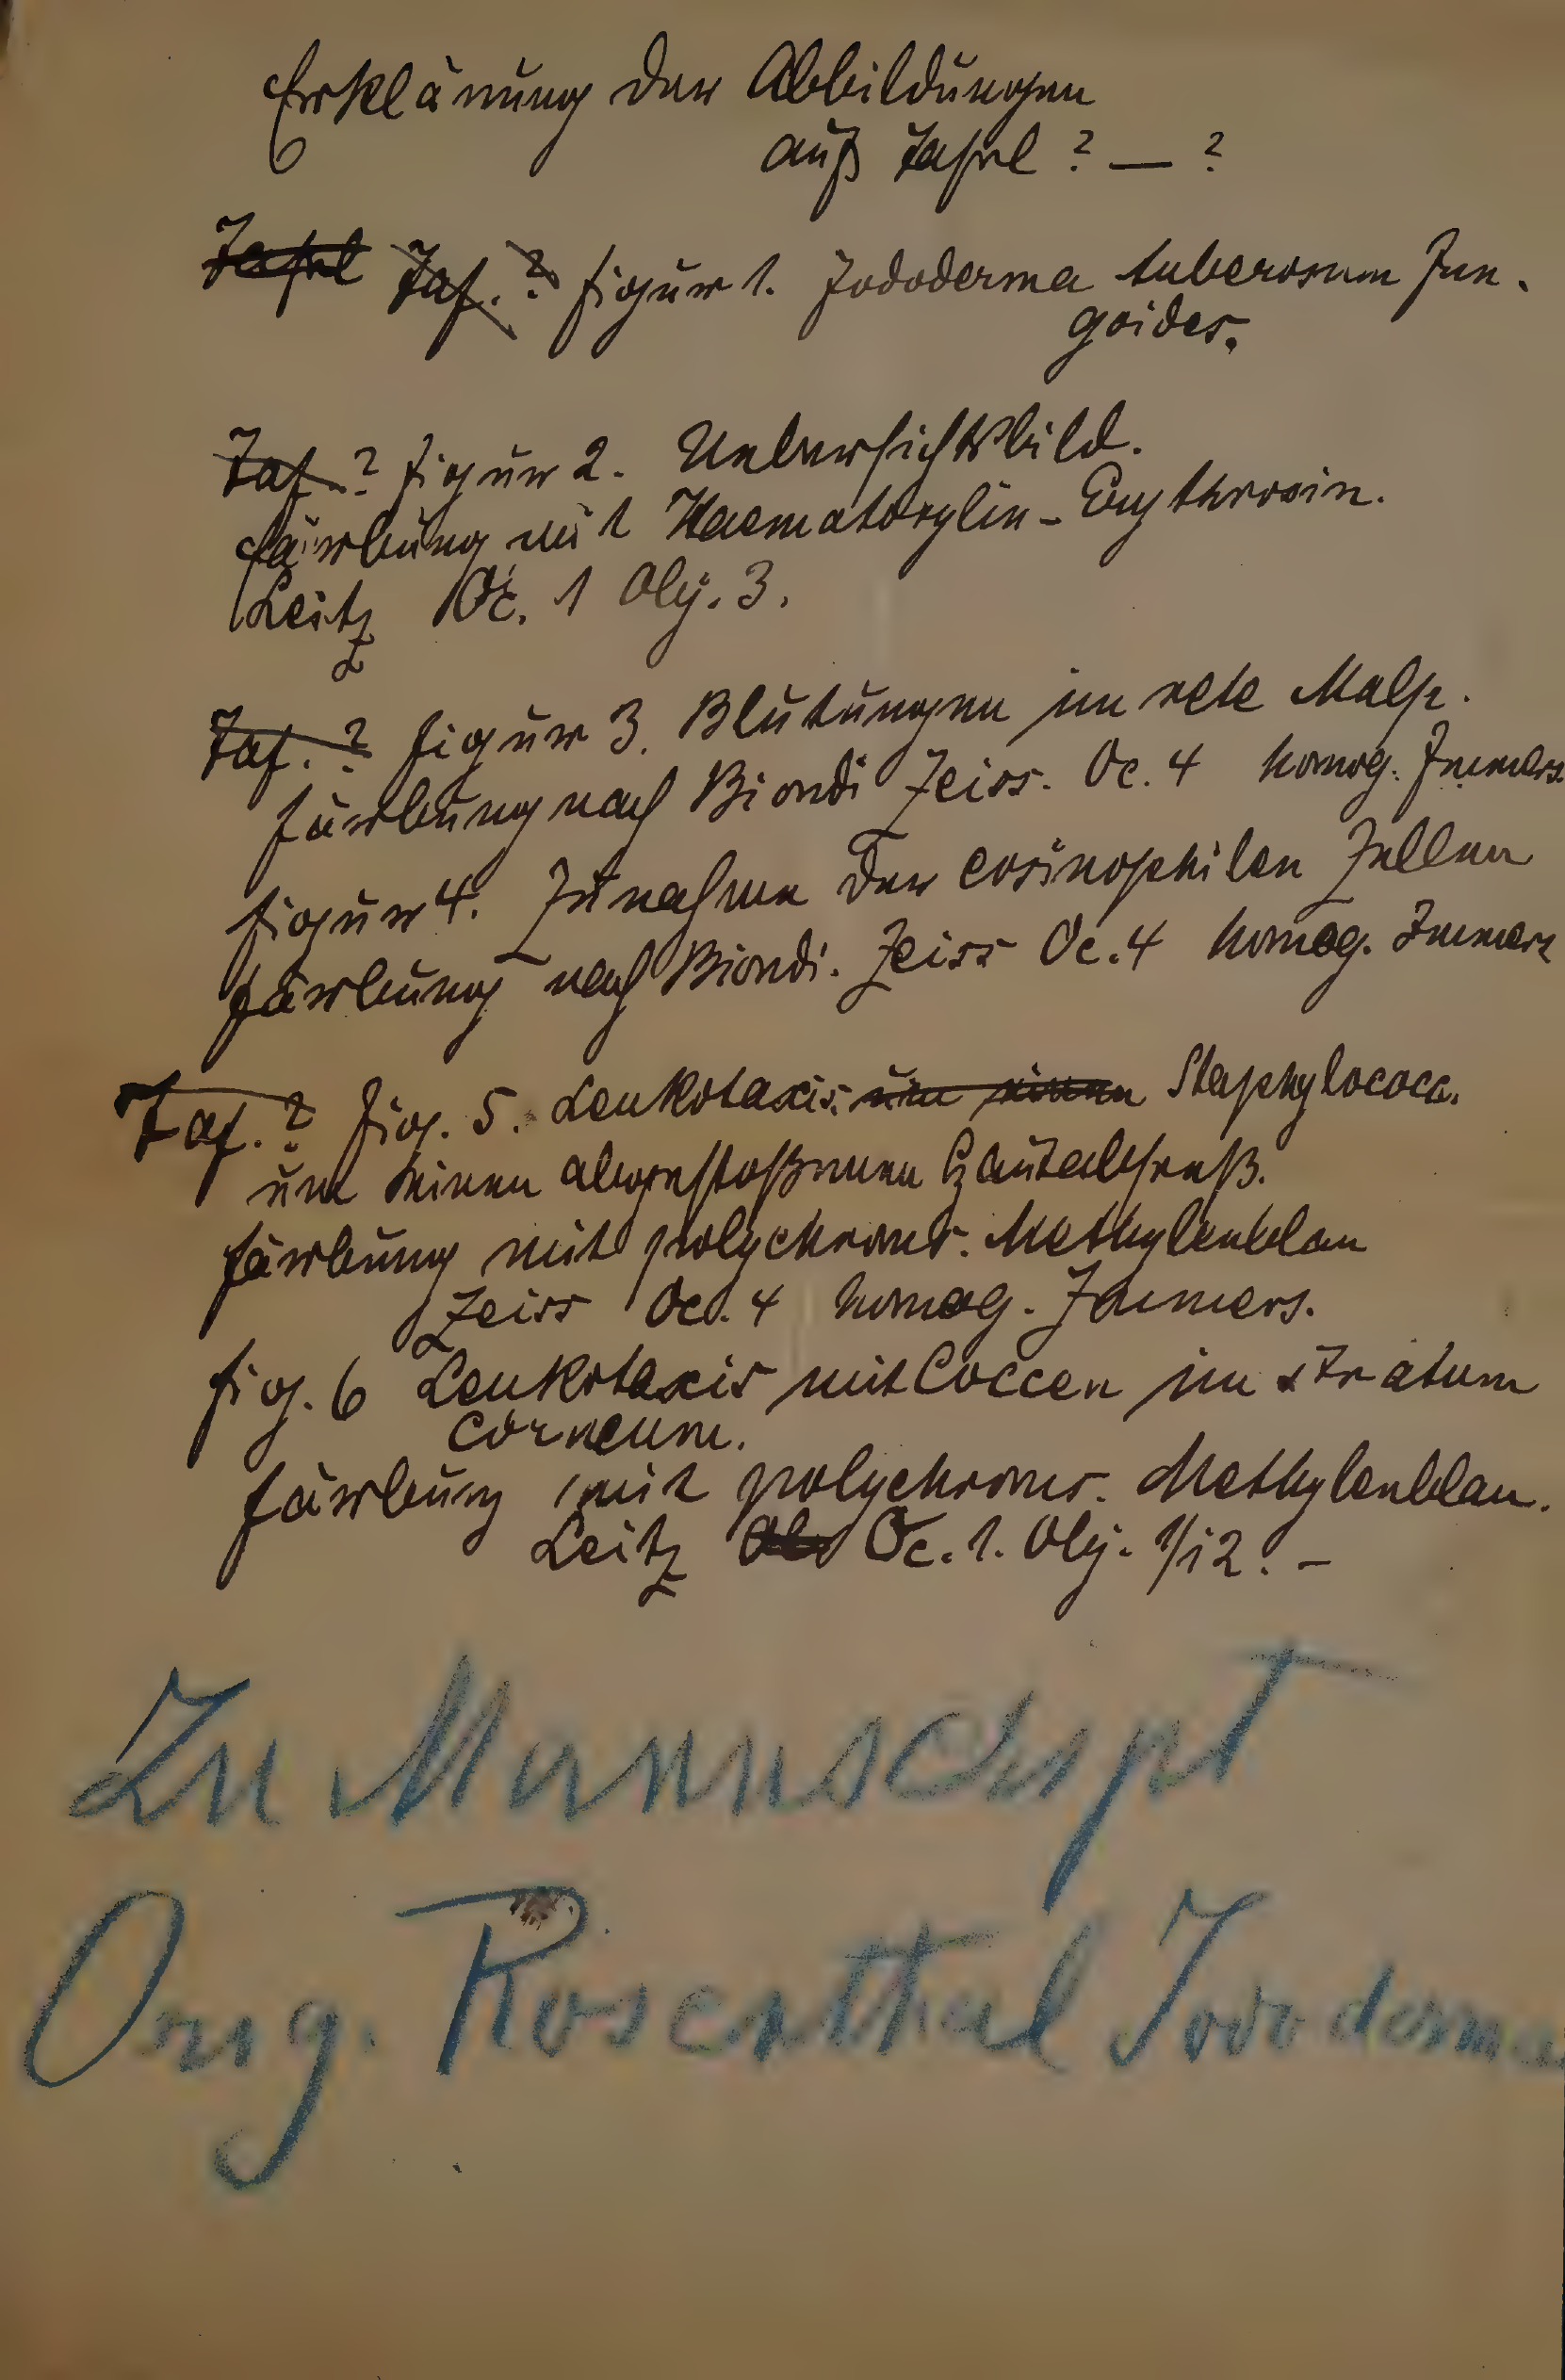 Erklärung der Abbildungen
auf Tafel ? — ?
Tafel Taf. ? Figur 1. Jododerma tuberosum fun-
goides.
Taf. ? Figur 2. Uebersichtsbild.
Färbung mit Haematoxylin-Erythrosin.
Leitz Oc. 1 Obj. 3.
Taf. ? Figur 3. Blutungen im rete Malp.
Färbung nach Biondi Zeiss. Oc. 4 homog. Immers.
Figur 4. Zunahme der eosinophilen Zellen
Färbung nach Biondi. Zeiss Oc. 4 homog. Immers
Taf. ? Fig. 5. Leukotaxis: um einen Staphylococc.
um einen abgestoßenen Hautabsceß.
Färbung mit polychrom. Methylenblau
Zeiss Oc. 4 homog. Immers.
Fig. 6 Leukotaxis mit Coccen im stratum
corneum.
Färbung mit polychrom. Methylenblau.
Leitz Oc. 1. Obj. 1/12. –
Zu Manuscript
Orig. Rosenthal Jododerma